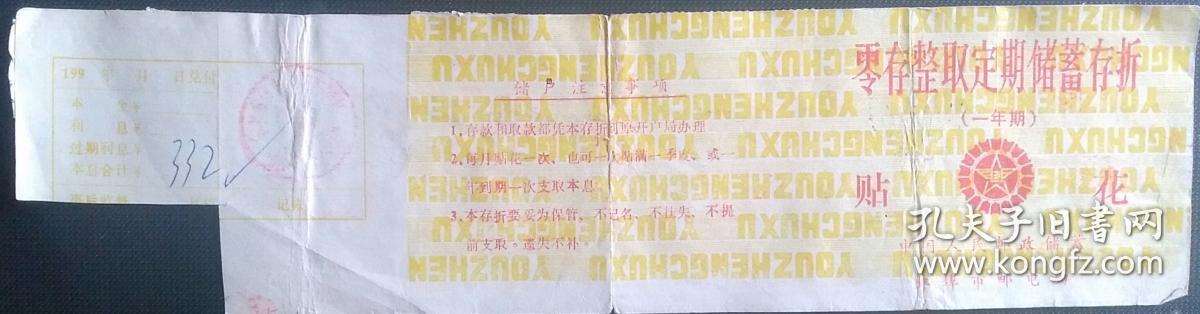 零存整取定期储蓄存折
(一年期)
贴 花
中国人民邮政储蓄
YOUZHENGCHUXU
储户注意事项
1.存款和取款都凭本存折到原开户局办理
2.每月贴花一次、也可一次贴满一季度、或一
年到期一次支取本息。
3.本存折要妥为保管，不记名、不挂失、不提
前支取。遗失不补。
199 年 月 日兑付
本 金￥
利 息￥
过期利息￥
本息合计￥
332
记账
孔夫子旧书网
www.kongfz.com